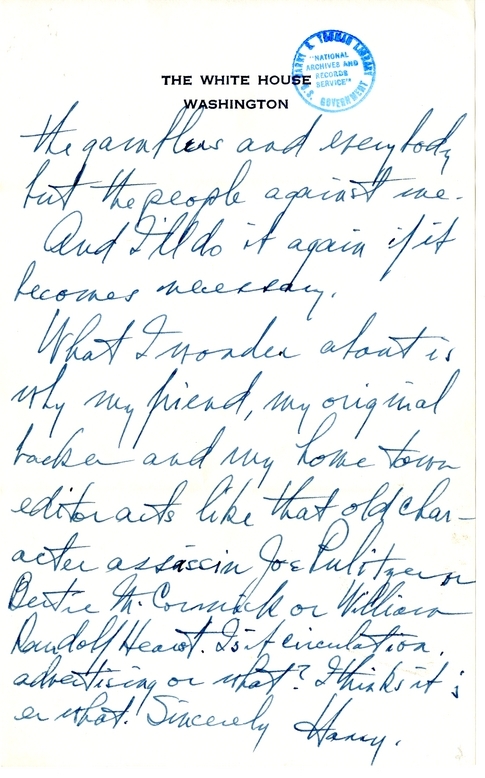 THE WHITE HOUSE
WASHINGTON
HARRY S. TRUMAN LIBRARY
"NATIONAL
ARCHIVES AND
RECORDS
SERVICE"
U.S. GOVERNMENT
the gamblers and everybody
but the people against me.
And I'll do it again if it
becomes necessary.
What I wonder about is
why my friend, my original
backer and my home town
editor acts like that old char-
acter assassin Joe Pulitzer or
Bertie McCormick or William
Randolf Hearst. Is it circulation,
advertising or what? I thinks it is
er what. Sincerely Harry.